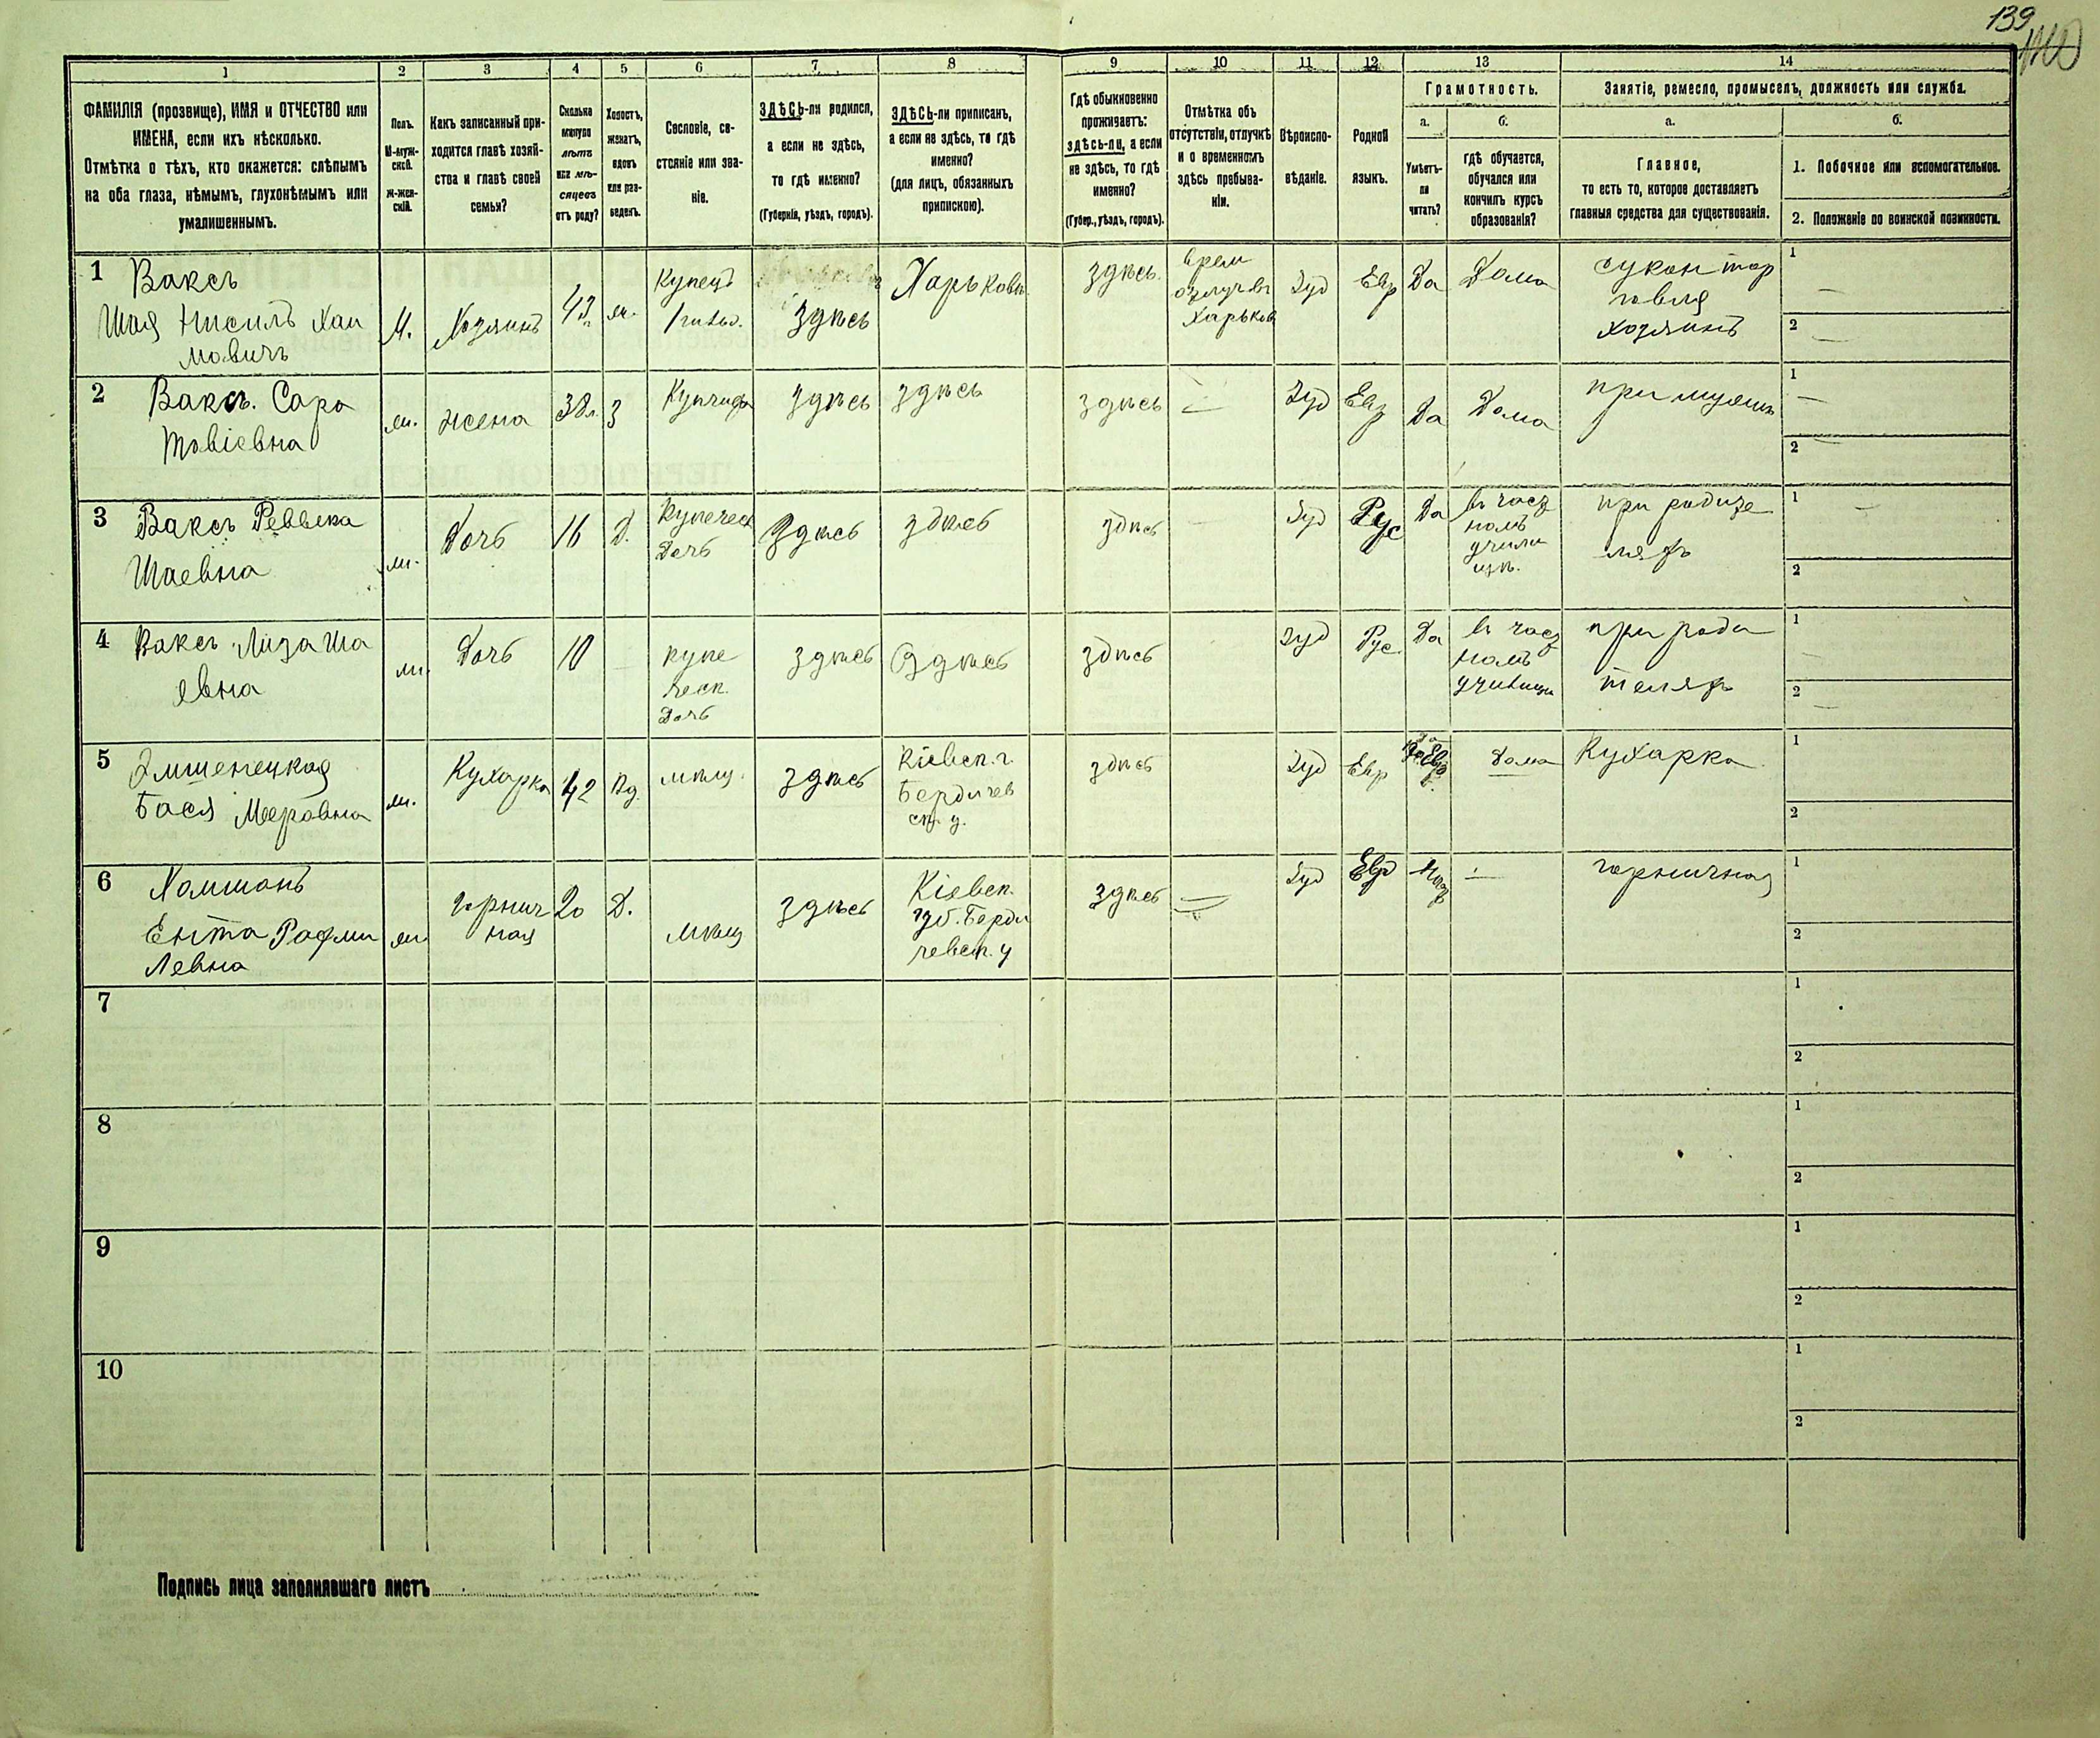 139
1 2 3 4 5 6 7 8 9 10 11 12 13 14
ФАМИЛІЯ (прозвище), ИМЯ и ОТЧЕСТВО или
ИМЕНА, если ихъ нѣсколько.
Отмѣтка о тѣхъ, кто окажется: слѣпымъ
на оба глаза, нѣмымъ, глухонѣмымъ или
умалишеннымъ.
Полъ.
М-муж-
скій.
Ж-жен-
скій.
Какъ записанный при-
ходится главѣ хозяй-
ства и главѣ своей
семьи?
Сколько
минуло
лѣтъ
или мѣ-
сяцевъ
отъ роду?
Холостъ,
женатъ,
вдовъ
или раз-
веденъ.
Сословіе, со-
стояніе или зва-
ніе.
ЗДѢСЬ-ли родился,
а если не здѣсь,
то гдѣ именно?
(Губернія, уѣздъ, городъ).
ЗДѢСЬ-ли приписанъ,
а если не здѣсь, то гдѣ
именно?
(для лицъ, обязанныхъ
припискою).
Гдѣ обыкновенно
проживаетъ:
здѣсь-ли, а если
не здѣсь, то гдѣ
именно?
(Губер., уѣздъ, городъ).
Отмѣтка объ
отсутствіи, отлучкѣ
и о временномъ
здѣсь пребыва-
ніи.
Вѣроиспо-
вѣданіе.
Родной
языкъ.
Грамотность.
а.
Умѣетъ-
ли
читать?
б.
гдѣ обучается,
обучался или
кончилъ курсъ
образованія?
Занятіе, ремесло, промыселъ, должность или служба.
а.
Главное,
то есть то, которое доставляетъ
главныя средства для существованія.
б.
1. Побочное или вспомогательное.
2. Положеніе по воинской повинности.
1 Ваксъ
Шая Нисилъ Хаи
мовичъ
М.
Хозяинъ
42
ж.
Купецъ
1 гильд.
здѣсь
Харьковъ
здѣсь.
врем
отлуч въ
Харьков
Іуд
Евр
Да
Дома
сукон тор
говля
хозяинъ
1
2
2 Ваксъ. Сара
Товіевна
ж.
жена
38 л.
З
Купчиха
здѣсь
здѣсь
здѣсь
Іуд
Евр
Да
Дома
при мужѣ
1
2
3 Ваксъ Реввека
Шаевна
ж.
Дочь
16
Д.
Купеческ
Дочь
Здѣсь
здѣсь
здѣсь
Іуд
Рус
Да
въ част
номъ
учили
щѣ.
при родите
ляхъ
1
2
4 Ваксъ Лиза Ша
евна
ж.
Дочь
10
купе
ческ.
Дочь
здѣсь
Здѣсь
здѣсь
Іуд
Рус.
Да
въ част
номъ
училищ
при роди
теляхъ
1
2
5
Бася Мееровна
ж.
Кухарка
42
Вд.
мѣщ.
здѣсь
Кіевск. г.
Бердичев
ск. у.
здѣсь
Іуд
Евр
Дома
Кухарка
1
2
6
Ента Рафаи
Левна
ж.
горнич
ная
20
Д.
мѣщ
здѣсь
Кіевск.
губ. Берди
чевск. у
здѣсь
Іуд
Евр
горничная
1
2
7
1
2
8
1
2
9
1
2
10
1
2
Подпись лица заполнявшаго листъ